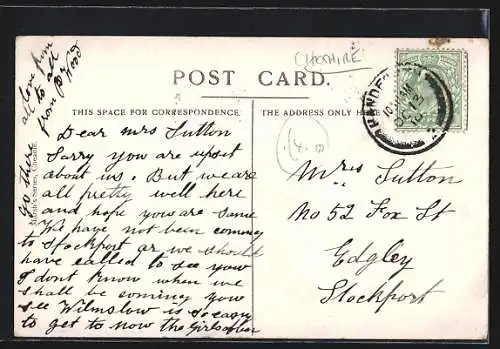 CHESHIRE
POST CARD.
THIS SPACE FOR CORRESPONDENCE.
THE ADDRESS ONLY H
HANDF
10 AM
OC 12
Dear Mrs Sutton
Sorry you are upset
about us. But we are
all pretty well here
and hope you are same
We have not been coming
to Stockport or we should
have called to see you
I dont know when we
shall be comming you
see Wilmslow is so easy
to get to now the Girls
go there
all love from
to all
from P Wood
Series, Cheadle.
Mrs Sutton
No 52 Fox St
Edgley
Stockport